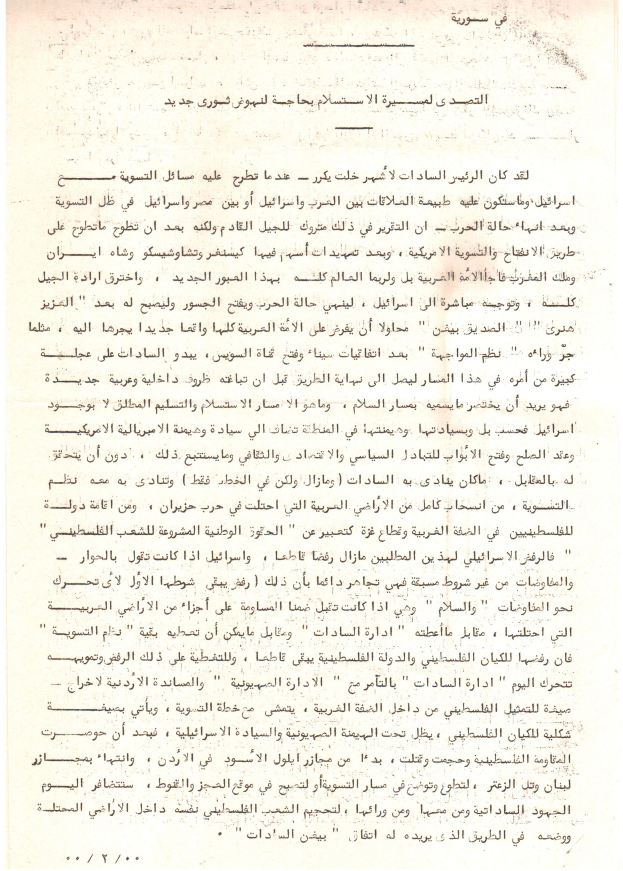 في سورية
التصدى لمسيرة الاستسلام بحاجة لنهوض ثورى جديد
لقد كان الرئيس السادات لأشهر خلت يكرر ــ عندما تطرح عليه مسائل التسوية مــع
اسرائيل وماستكون عليه طبيعة العلاقات بين العرب واسرائيل أو بين مصر واسرائيل في ظل التسوية
وبعد انهاء حالة الحرب ــ ان التقرير في ذلك متروك للجيل القادم ولكنه بعد ان تطوح ماتطوح على
طريق الانفتاح والتسوية الامريكية ، وبعد تمهيدات أسهم فيها كيسنغر وتشاوشيسكو وشاه ايــران
وملك المغرب فاجأ الأمة العربية بل ولربما العالم كلــه بهذا العبور الجديد ، واخترق ارادة الجيل
كلــه ، وتوجــه مباشرة الى اسرائيل ، لينهي حالة الحرب ويفتح الجسور وليصبح له بعد " العزيز
هنرى " " الصديق بيغن " محاولا أن يفرض على الأمة العربية كلها واقعا جديدا يجرها اليه ، مثلما
جرّ وراءه " نظم المواجهة " بعد اتفاقيات سيناء وفتح قناة السويس، يبدو السادات على عجلــة
كبيرة من أمره في هذا المسار ليصل الى نهاية الطريق قبل ان تباغته ظروف داخلية وعربية جديــدة
فهو يريد أن يختصر مايسميه بمسار السلام ، وماهو الا مسار الاستسلام والتسليم المطلق لا بوجــود
اسرائيل فحسب بل وبسيادتها وهيمنتها في المنطقة تضاف الى سيادة وهيمنة الامبريالية الامريكيــة
وعقد الصلح وفتح الأبواب للتبادل السياسي والاقتصادى والثقافي ومايستتبع ذلك ، دون أن يتحقق
له بالمقابل ، ماكان ينادى به السادات ( ومازال ولكن في الخطب فقط ) وتنادى به معه نظــم
التسوية ، من انسحاب كامل من الأراضي العربية التي احتلت في حرب حزيران ، ومن اقامة دولــة
للفلسطينيين في الضفة الغربية وقطاع غزة كتعبير عن " الحقوق الوطنية المشروعة للشعب الفلسطينــي "
" فالرفض الاسرائيلي لهذين المطلبين مازال رفضا قاطعا ، واسرائيل اذا كانت تقول بالحوار ــ
والمفاوضات من غير شروط مسبقة فهي تجاهر دائما بأن ذلك ( رفض يبقى شرطها الأول لأى تحــرك
نحو المفاوضات " والسلام " وهي اذا كانت تقبل ضمنا المساومة على أجزاء من الأراضي العربيــة
التي احتلتها ، مقابل ماأعطته " ادارة السادات " ومقابل مايمكن أن تعطيه بقية " نظم التسويــة "
فان رفضها للكيان الفلسطيني والدولة الفلسطينية يبقى قاطعا ، وللتغطية على ذلك الرفض وتمويهــه
تتحرك اليوم " ادارة السادات " بالتآمر مع " الادارة الصهيونية " والمساندة الأردنية لاخراج ــ
صيغة للتمثيل الفلسطيني من داخل الضفة الغربية ، يتمشى مع خطة التسوية ، ويأتي بصيغــة
شكلية للكيان الفلسطيني ، يظل تحت الهيمنة الصهيونية والسيادة الاسرائيلية ، فبعد أن حوصــرت
المقاومة الفلسطينية وحجمت وقتلت ، بدءا من مجازر ايلول الأسود في الأردن ، وانتهاء بمجــازر
لبنان وتل الزعتر ، لتطوع وتوضع في مسار التسوية أو لتصبح في موقع العجز والقنوط ، ستتضافر اليــوم
الجهود الساداتية ومن معها ومن ورائها ، لتحجيم الشعب الفلسطيني نفسه داخل الأراضي المحتلــة
ووضعه في الطريق الذى يريده له اتفاق " بيغن السادات " .
٠٠ / ٢ / ٠٠